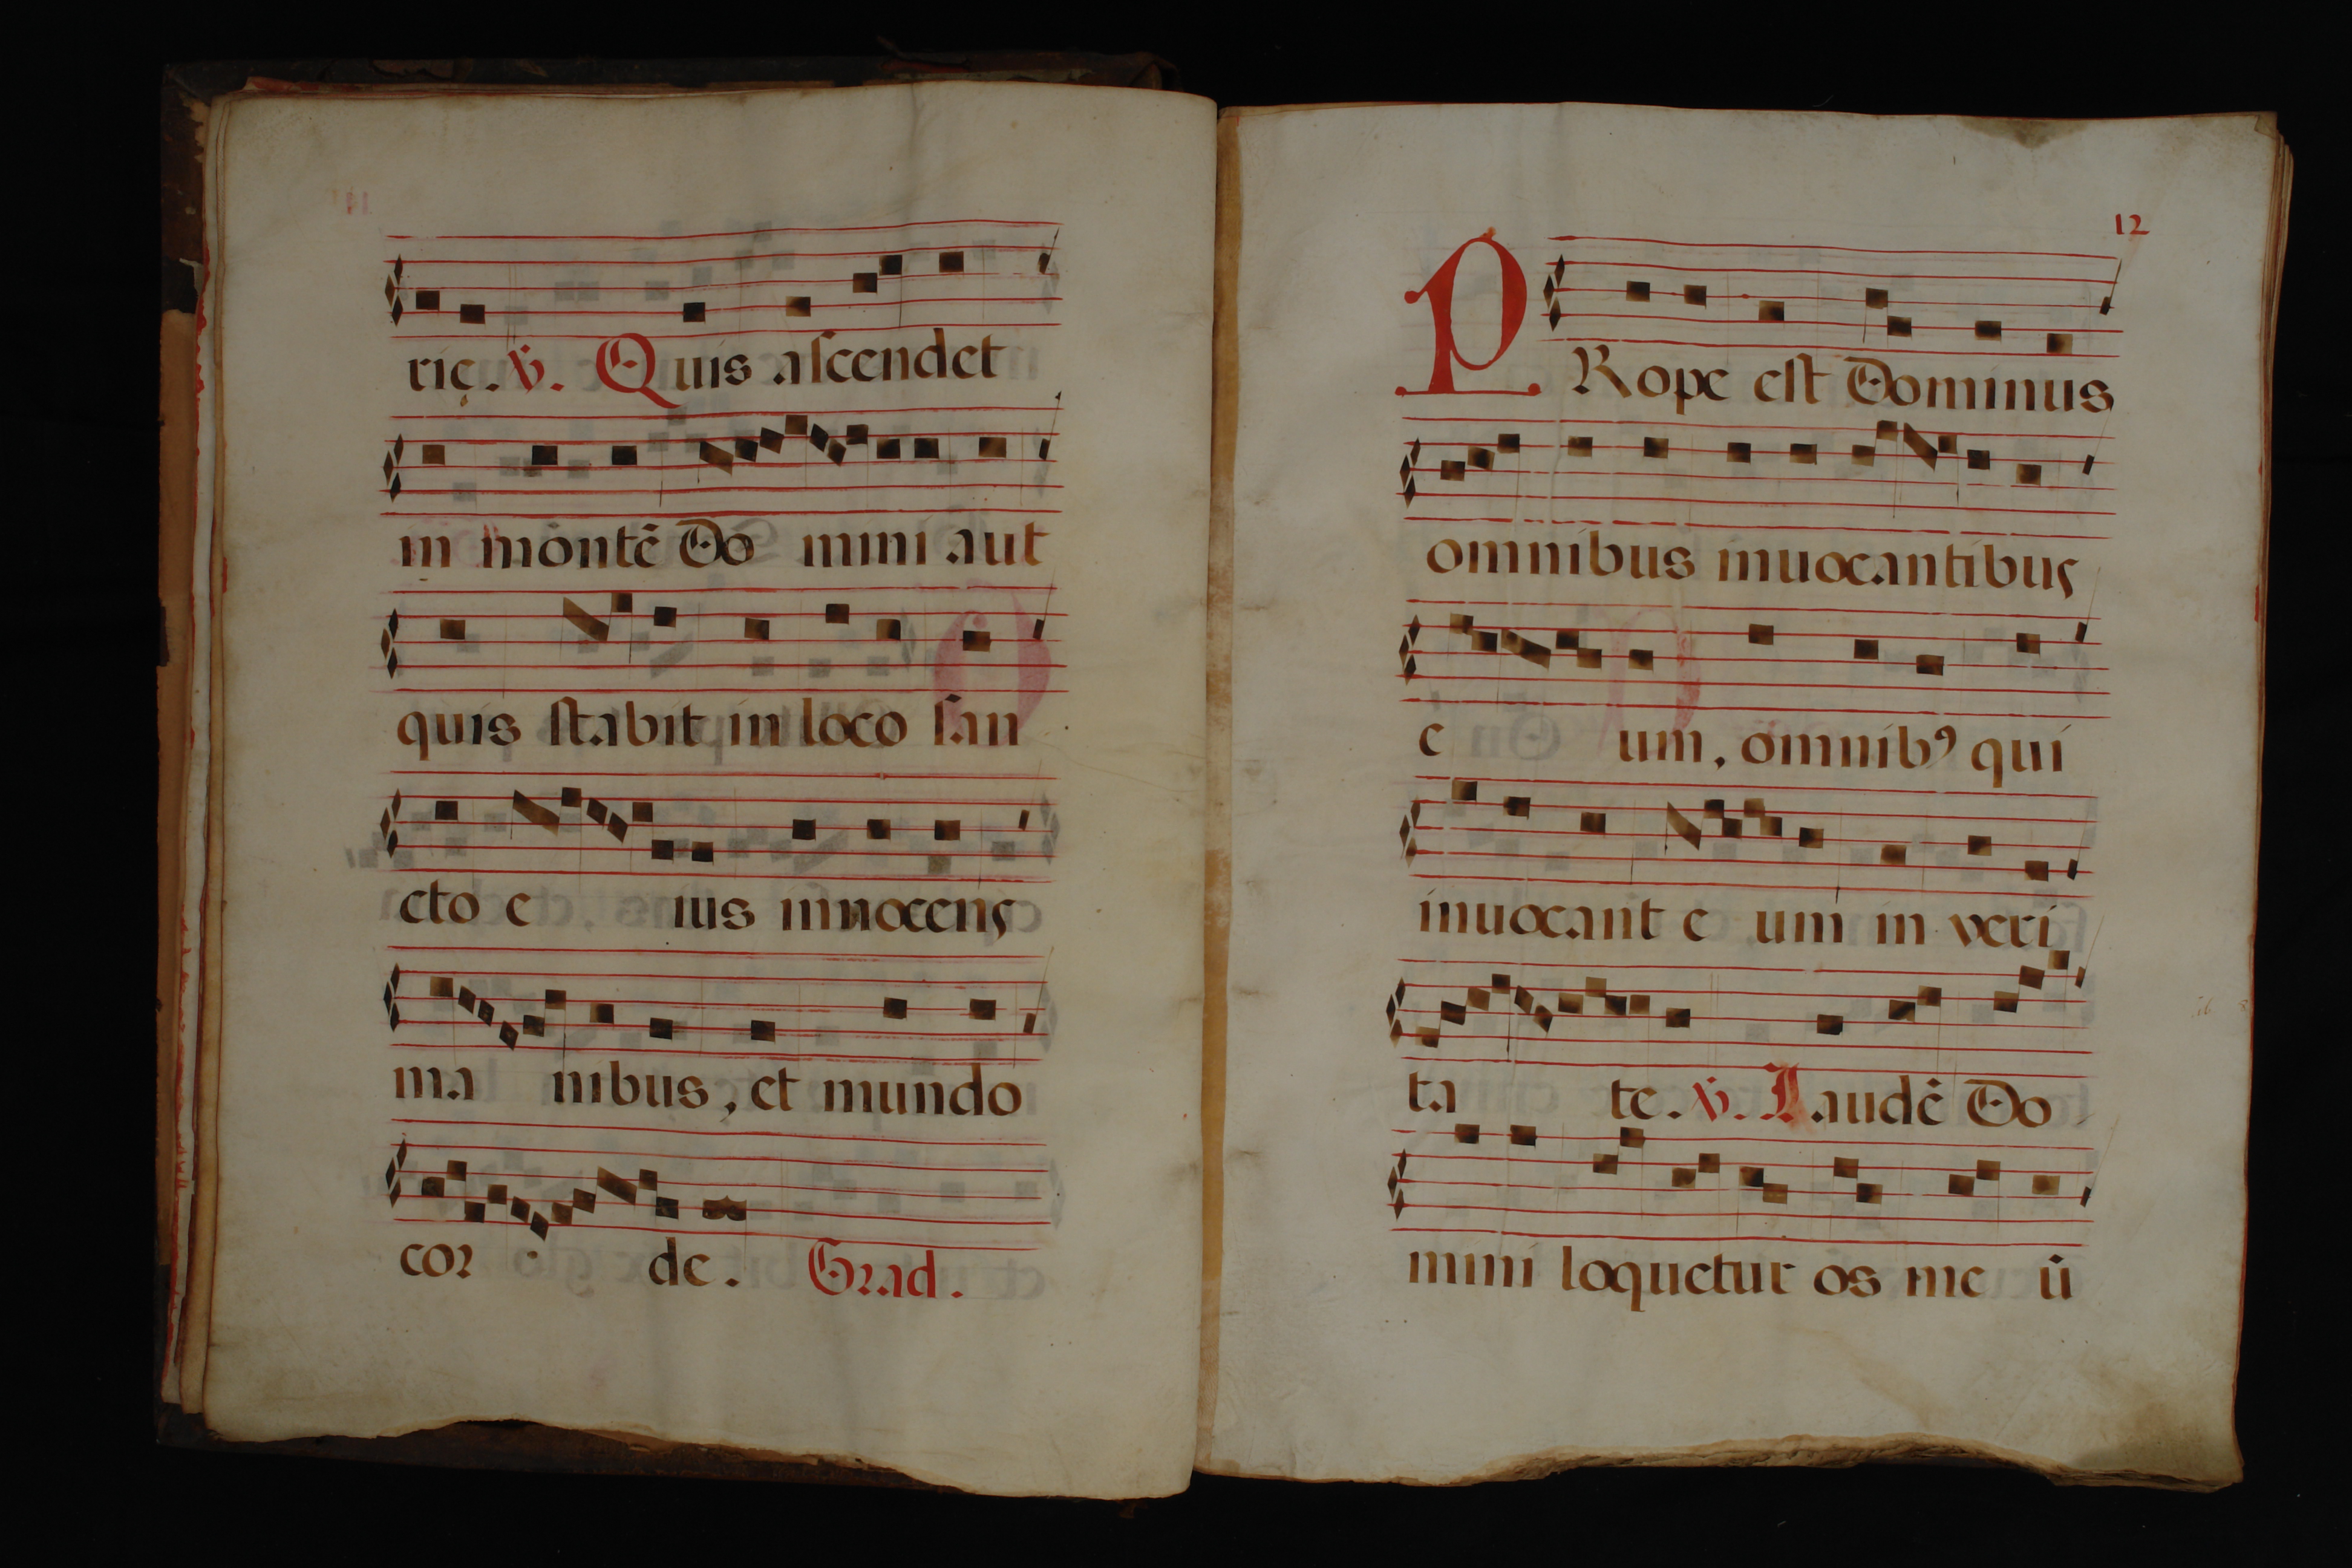 rię. ℣. Quis aſcendet
in mōntē Do mini aut
quis ſtabit in loco ſan
cto e ius innocens
ma nibus, et mundo
cor de. Grad.
12
PRope eſt Dominus
omnibus inuocantibus
e um, omnibꝰ qui
inuocant e um in veri
ta te. ℣. Laudē Do
mini loquetur os me ū